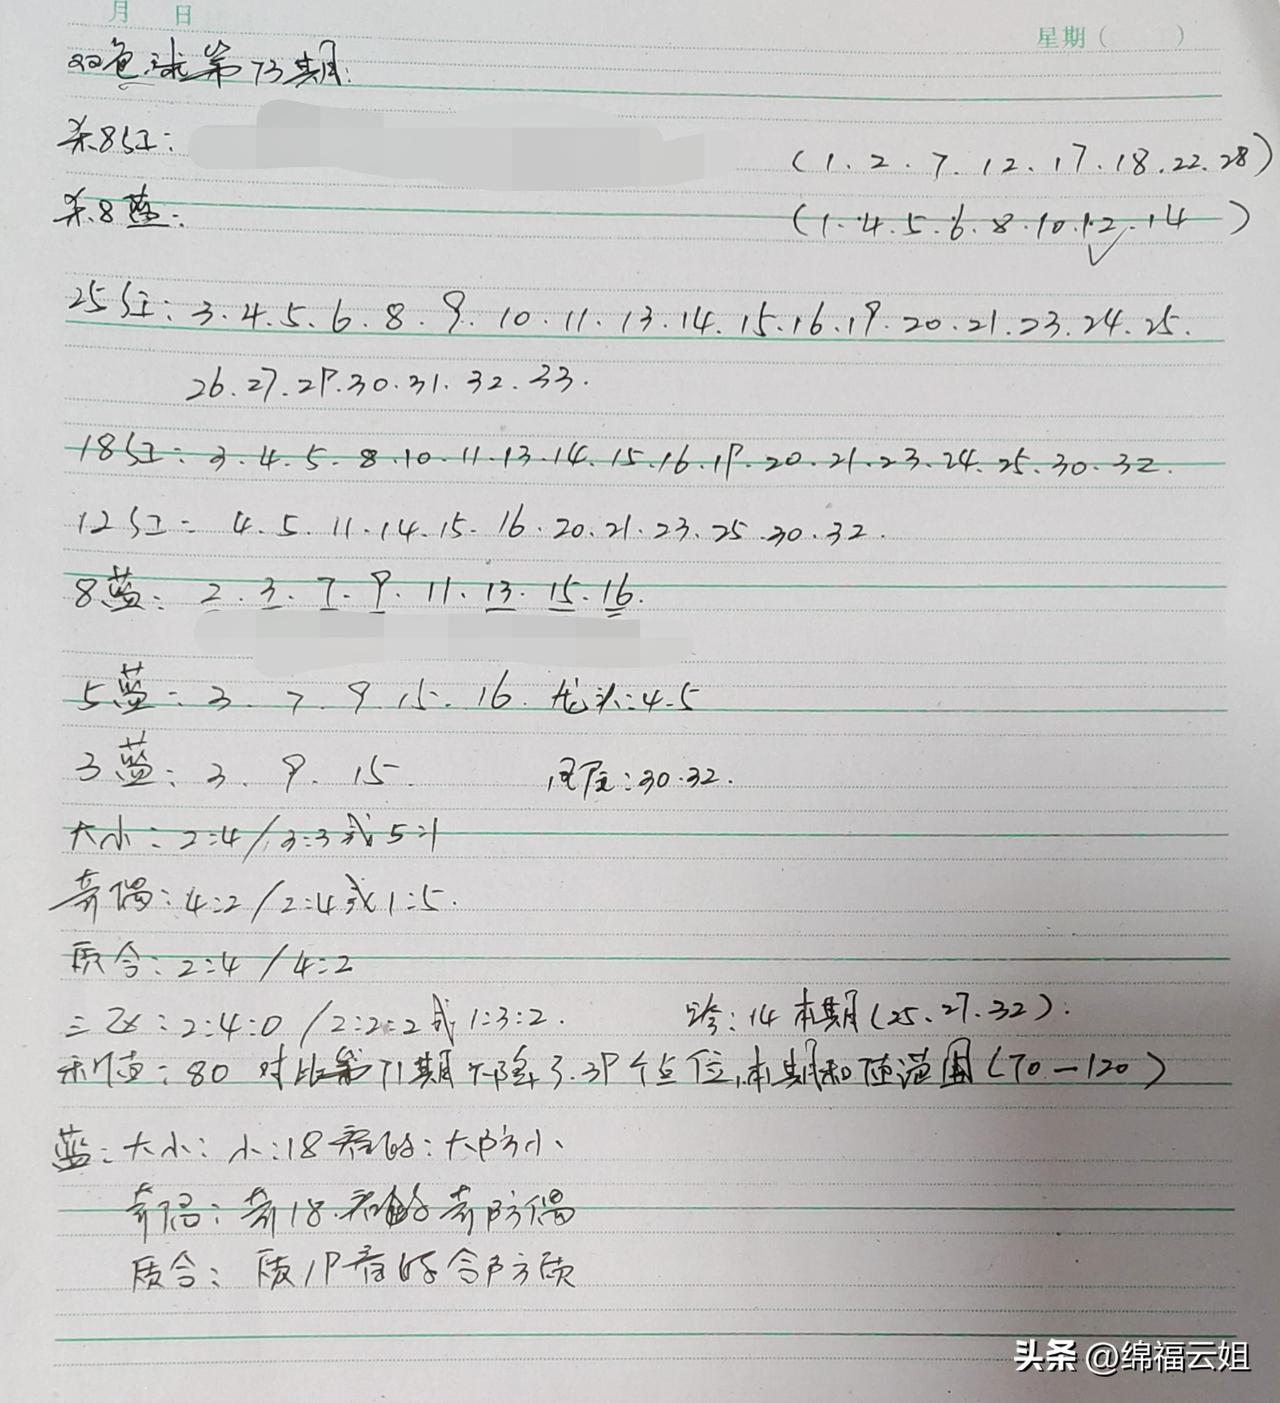 月 日
星期( )
双色球第73期.
杀8红: (1.2.7.12.17.18.22.28)
杀8蓝: (1.4.5.6.8.10.12.14)
25红: 3.4.5.6.8.9.10.11.13.14.15.16.19.20.21.23.24.25.
26.27.29.30.31.32.33.
18红: 3.4.5.8.10.11.13.14.15.16.19.20.21.23.24.25.30.32.
12红: 4.5.11.14.15.16.20.21.23.25.30.32.
8蓝: 2.3.7.9.11.13.15.16.
5蓝: 3.7.9.15.16. 龙头:4.5
3蓝: 3.9.15. 凤尾:30.32.
大小: 2:4/3:3或5:1
奇偶: 4:2/2:4或1:5.
质合: 2:4/4:2
三区: 2:4:0/2:2:2或1:3:2. 跨: 14 本期(25.27.32).
和值: 80 对比第71期下降了39个点位,本期和值范围(70—120)
蓝: 大小: 小:18 看好: 大防小
奇偶: 奇18.看好奇防偶
质合: 质19看好合防质
头条 @绵福云姐